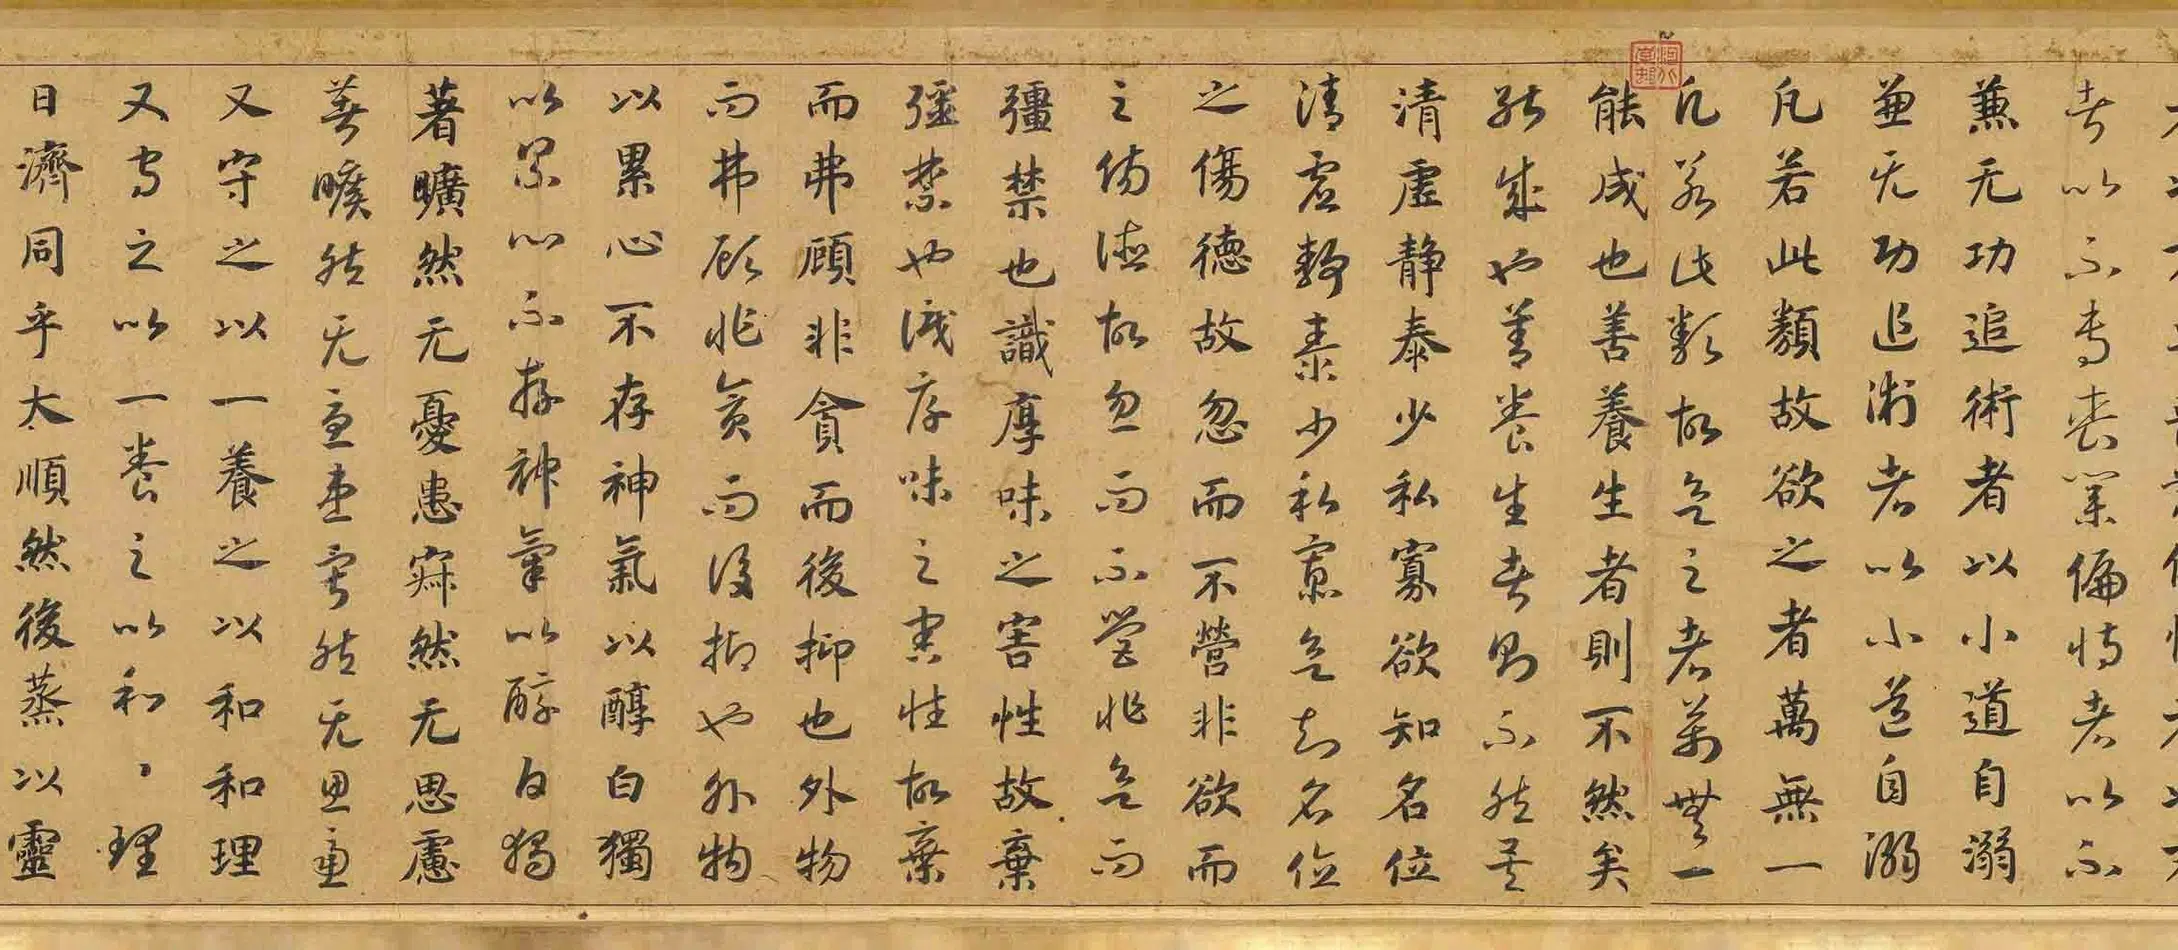 者以不專喪業偏恃者以不
兼无功追術者以小道自溺
兼无功追術者以小道自溺
凡若此類故欲之者萬無一
凡若此類故欲之者萬無一
能成也善養生者則不然矣
能成也善養生者則不然矣
清虛静泰少私寡欲知名位
清虛静泰少私寡欲知名位
之傷德故忽而不營非欲而
之傷德故忽而不營非欲而
彊禁也識厚味之害性故棄
彊禁也識厚味之害性故棄
而弗顧非貪而後抑也外物
而弗顧非貪而後抑也外物
以累心不存神氣以醇白獨
以累心不存神氣以醇白獨
著曠然无憂患寂然无思慮
著曠然无憂患寂然无思慮
又守之以一養之以和和理
又守之以一養之以和〻理
日濟同乎太順然後蒸以靈